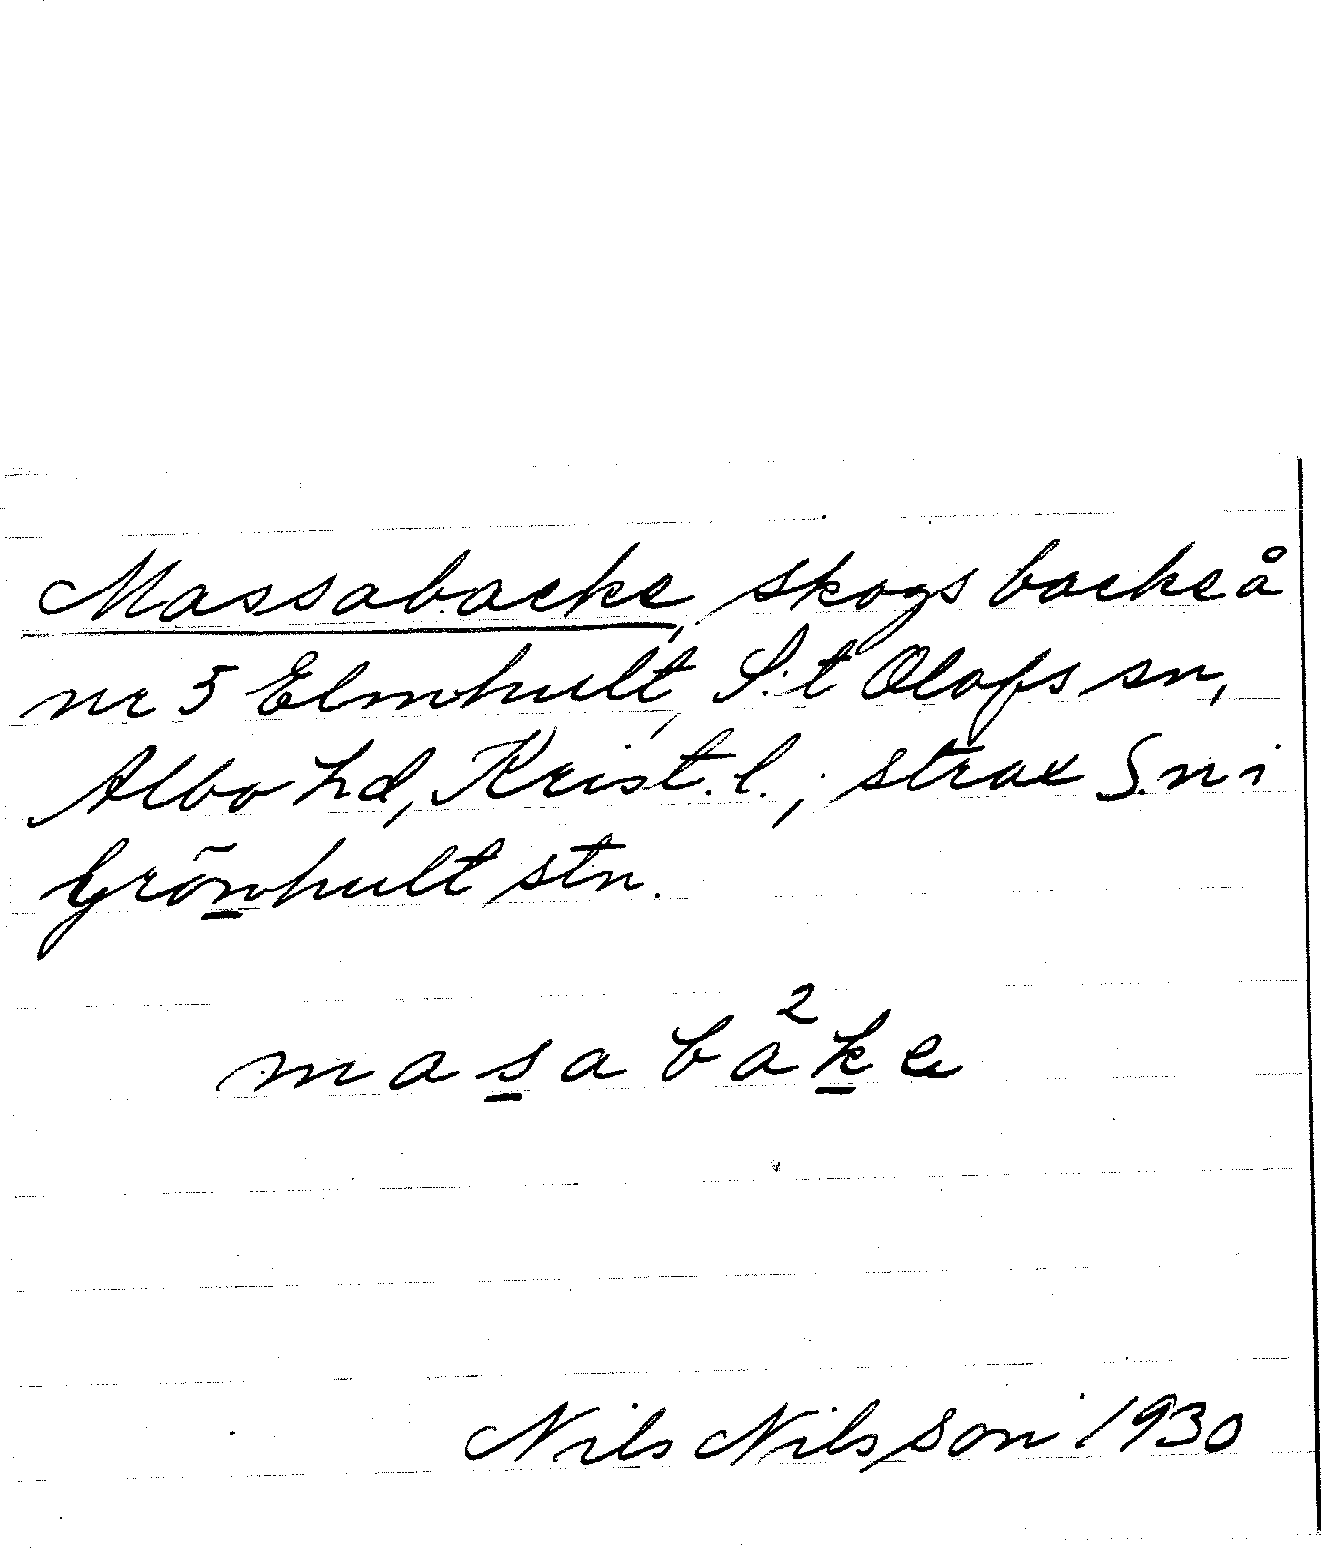 Massabacke, skogsbacke å
nr 5 Elmhult, S:t Olofs sn,
Albo hd, Krist. l., strax S. n i
Grönhult stn.
masaba²ke
Nils Nilsson 1930